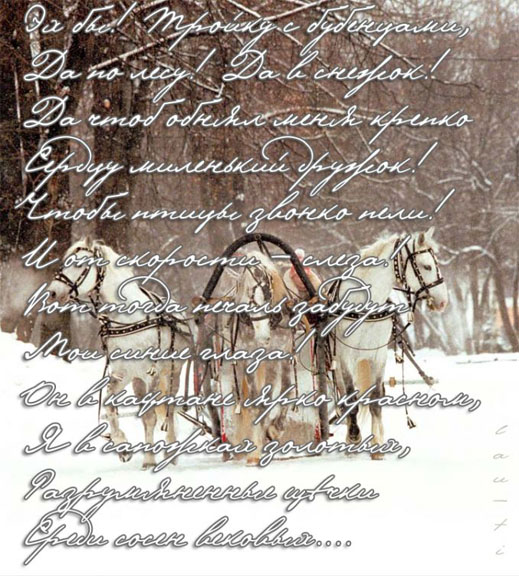 Эх бы! Тройку с бубенцами,
Да по лесу! Да в снежок!
Да чтоб обнял меня крепко
Сердцу миленький дружок!
Чтобы птицы звонко пели!
И от скорости – слеза!
Вот тогда печаль забудут
Мои синие глаза!
Он в кафтане ярко красном,
Я в сапожках золотых,
Разрумяненные щёчки
Среди сосен вековых....
lau-ti